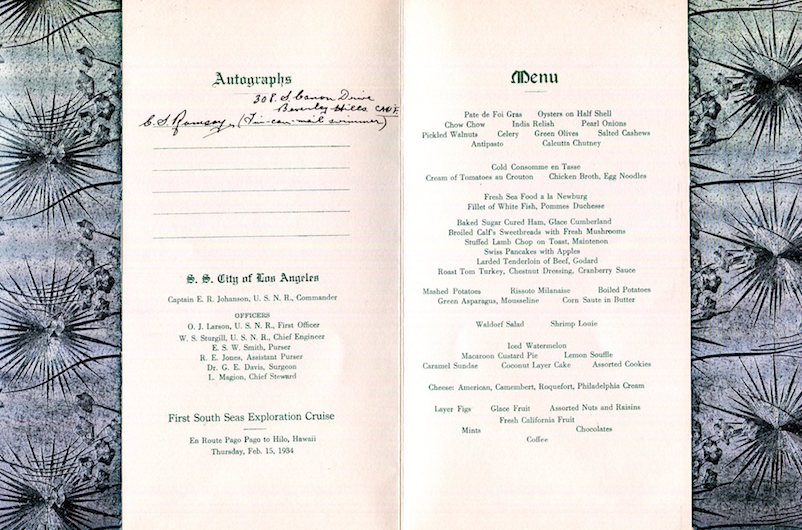 Autographs
308 S Canon Drive
Beverly Hills Calif.
C. S. Ramsay, (Tin-can-mail swimmer)
S. S. City of Los Angeles
Captain E. R. Johanson, U. S. N. R., Commander
OFFICERS
O. J. Larson, U. S. N. R., First Officer
W. S. Sturgill, U. S. N. R., Chief Engineer
E. S. W. Smith, Purser
R. E. Jones, Assistant Purser
Dr. G. E. Davis, Surgeon
L. Magion, Chief Steward
First South Seas Exploration Cruise
En Route Pago Pago to Hilo, Hawaii
Thursday, Feb. 15, 1934
Menu
Pate de Foi Gras Oysters on Half Shell
Chow Chow India Relish Pearl Onions
Pickled Walnuts Celery Green Olives Salted Cashews
Antipasto Calcutta Chutney
Cold Consomme en Tasse
Cream of Tomatoes au Crouton Chicken Broth, Egg Noodles
Fresh Sea Food a la Newburg
Fillet of White Fish, Pommes Duchesse
Baked Sugar Cured Ham, Glace Cumberland
Broiled Calf's Sweetbreads with Fresh Mushrooms
Stuffed Lamb Chop on Toast, Maintenon
Swiss Pancakes with Apples
Larded Tenderloin of Beef, Godard
Roast Tom Turkey, Chestnut Dressing, Cranberry Sauce
Mashed Potatoes Rissoto Milanaise Boiled Potatoes
Green Asparagus, Mousseline Corn Saute in Butter
Waldorf Salad Shrimp Louie
Iced Watermelon
Macaroon Custard Pie Lemon Souffle
Caramel Sundae Coconut Layer Cake Assorted Cookies
Cheese: American, Camembert, Roquefort, Philadelphia Cream
Layer Figs Glace Fruit Assorted Nuts and Raisins
Fresh California Fruit
Mints Chocolates
Coffee